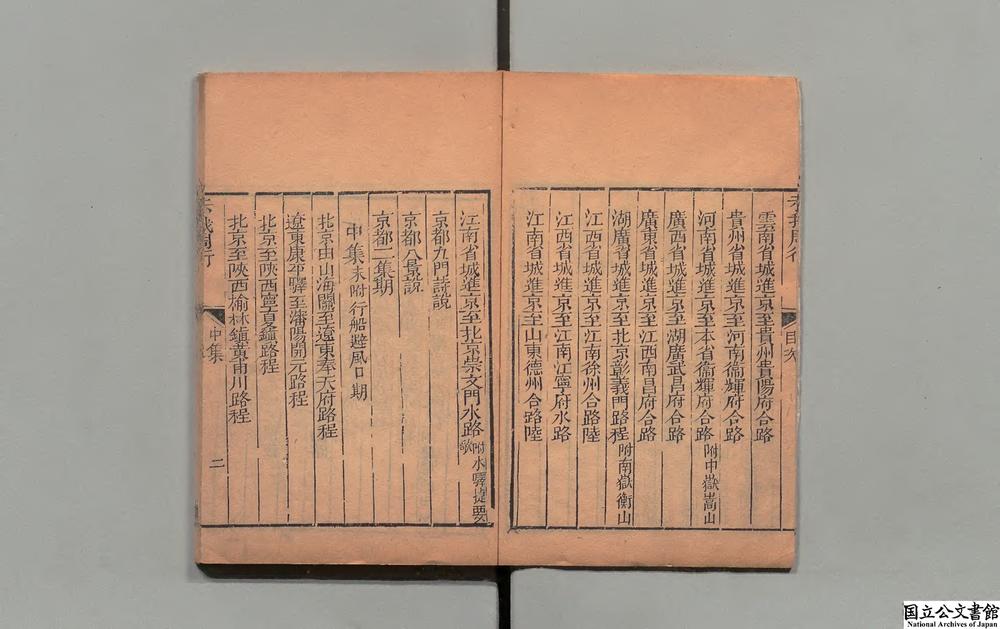 雲南省城進京至貴州貴陽府合路
貴州省城進京至河南衞輝府合路
河南省城進京至本省衞輝府合路 附中嶽嵩山
廣西省城進京至湖廣武昌府合路
廣東省城進京至江西南昌府合路
湖廣省城進京至北京彰義門路程 附南嶽衡山
江西省城進京至江南徐州合路陸
江西省城進京至江南江寧府水路
江南省城進京至山東德州合路陸
江南省城進京至北京崇文門水路 附水驛捷要歌
京都九門詩說
京都八景說
京都二集期
中集 末附行船避風口期
北京由山海關至遼東奉天府路程
遼東康平驛至瀋陽開元路程
北京至陝西寧夏鎮路程
北京至陝西榆林鎮黃甫川路程
周行
中集
二
国立公文書館
National Archives of Japan